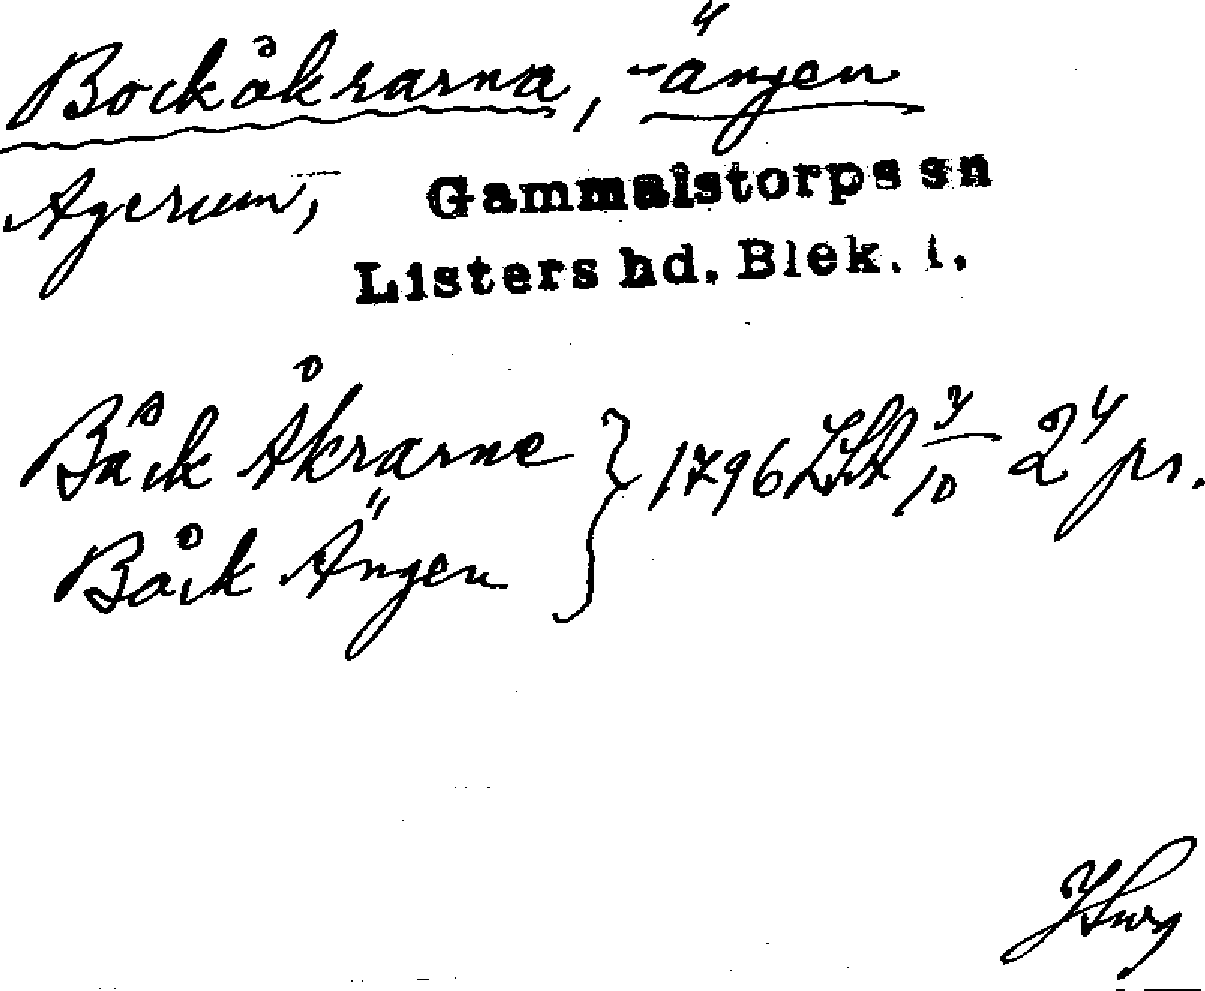 Bockåkrarna, -ängen
Agerum, Gammalstorps sn
Listers hd. Blek. l.
Båck Åkrarne
Båck Ängen } 1796 LSA 7/10 24 pr.